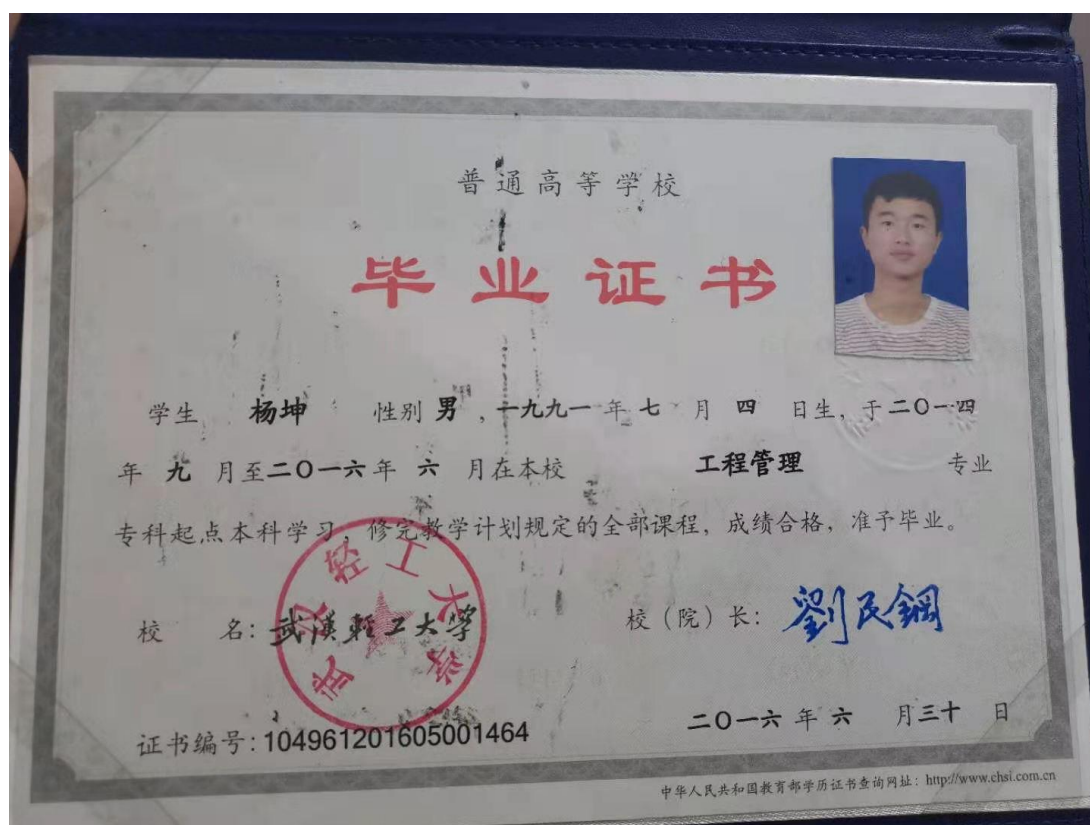 普通高等学校
毕业证书
学生 杨坤 性别 男 ，一九九一 年 七 月 四 日生，于二〇一四
年 九 月至二〇一六年 六 月在本校 工程管理 专业
专科起点本科学习，修完教学计划规定的全部课程，成绩合格，准予毕业。
校 名：武漢輕工大學
武汉轻工大学
校（院）长：劉民鋼
二〇一六 年 六 月三十 日
证书编号：104961201605001464
中华人民共和国教育部学历证书查询网址：http://www.chsi.com.cn